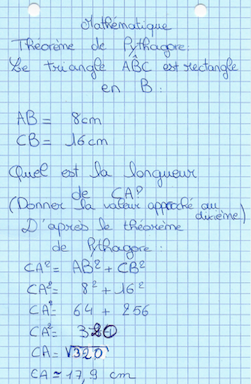 Mathématique
Théorème de Pythagore.
Le triangle ABC est rectangle
en B.
AB = 8cm
CB = 16cm
Quel est la longueur
de CA?
(Donner la valeur approché au
dixième)
D'après le théorème
de Pythagore :
CA² = AB² + CB²
CA² = 8² + 16²
CA² = 64 + 256
CA² = 320
CA = √320
CA ≈ 17,9 cm